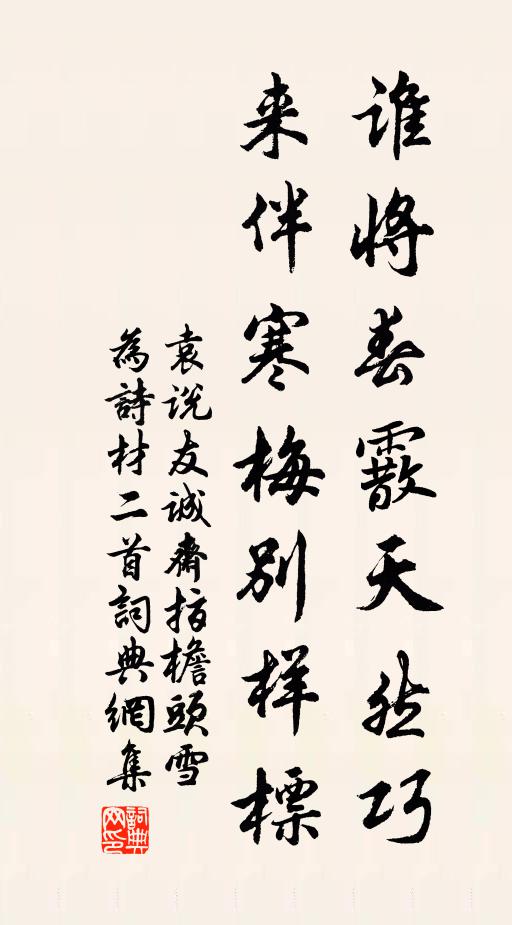 谁将春霰天然巧
来伴寒梅别样标
袁说友诚斋指檐頭雪
為詩材二首詞典網集
詞典網印